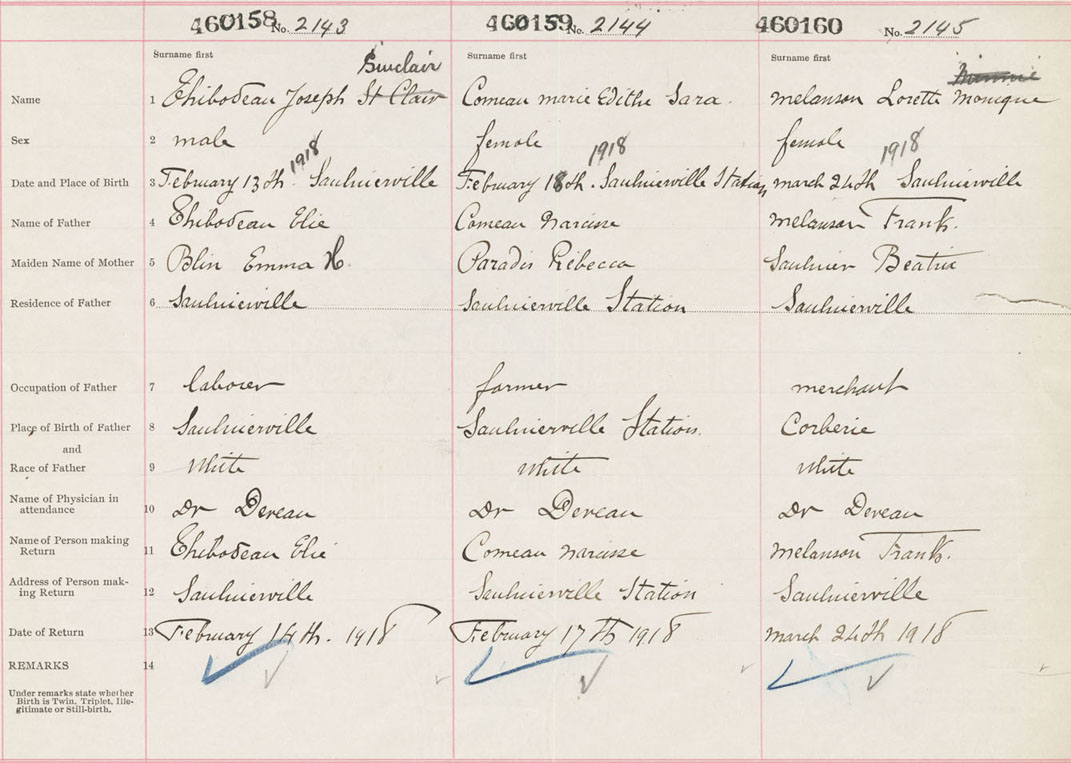 460158 No. 2143 460159 No. 2144 460160 No. 2145
Surname first Surname first Surname first
Sinclair
Name 1 Thibodeau Joseph St Clair Comeau marie Edithe Sara. melanson Lorette monique
Sex 2 male female female
1918 1918 1918
Date and Place of Birth 3 February 13th. Saulnierville February 18th. Saulnierville Station march 24th Saulnierville
Name of Father 4 Thibodeau Elie Comeau Narcisse melanson Frank.
Maiden Name of Mother 5 Blin Emma H. Paradis Rébecca Saulnier Beatrice
Residence of Father 6 Saulnierville Saulnierville Station Saulnierville
Occupation of Father 7 laborer farmer merchant
Place of Birth of Father 8 Saulnierville Saulnierville Station. Corberie
and
Race of Father 9 White White White
Name of Physician in
attendance 10 Dr Deveau Dr Deveau Dr Deveau
Name of Person making
Return 11 Thibodeau Elie Comeau narcisse melanson Frank.
Address of Person mak-
ing Return 12 Saulnierville Saulnierville Station Saulnierville
Date of Return 13 February 14th. 1918 February 17th 1918 march 24th 1918
REMARKS 14
Under remarks state whether
Birth is Twin, Triplet, Ille-
gitimate or Still-birth.